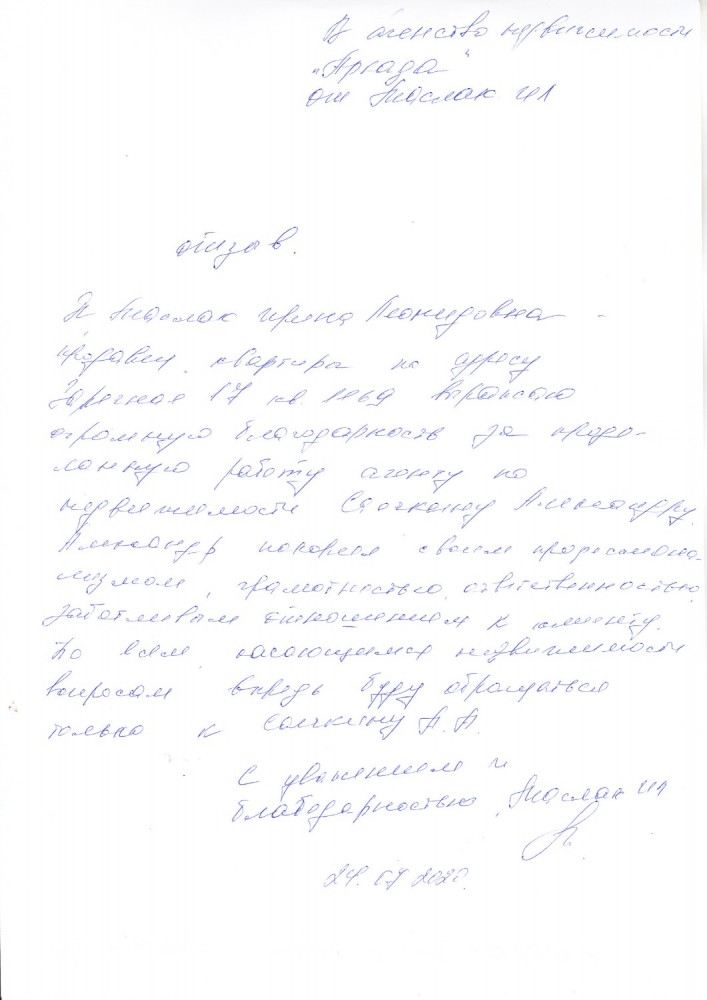 В агенство недвижимости
„Аркада"
от Маслак ИЛ
отзыв.
Я Маслак Ирина Леонидовна -
продавец квартиры по адресу
Заречная 17 кв. выражаю
огромную благодарность за проде-
ланную работу агенту по
недвижимости Александру.
Александр покорил своим професиона-
лизмом, грамотностью, ответственностью,
заботливым отношением к клиенту.
По всем, касающимся недвижимости
вопросам впредь буду обращаться
только к А.А.
С уважением и
благодарностью Маслак ИЛ
24.07.2020